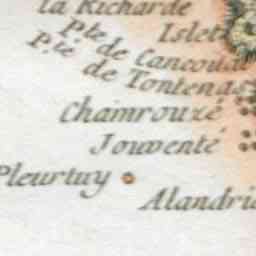 la Richarde
Islet
Pte de Cancoual
P.te de Tontenas
Chamrouzé
Jouventé
Pleurtuy
Alandri